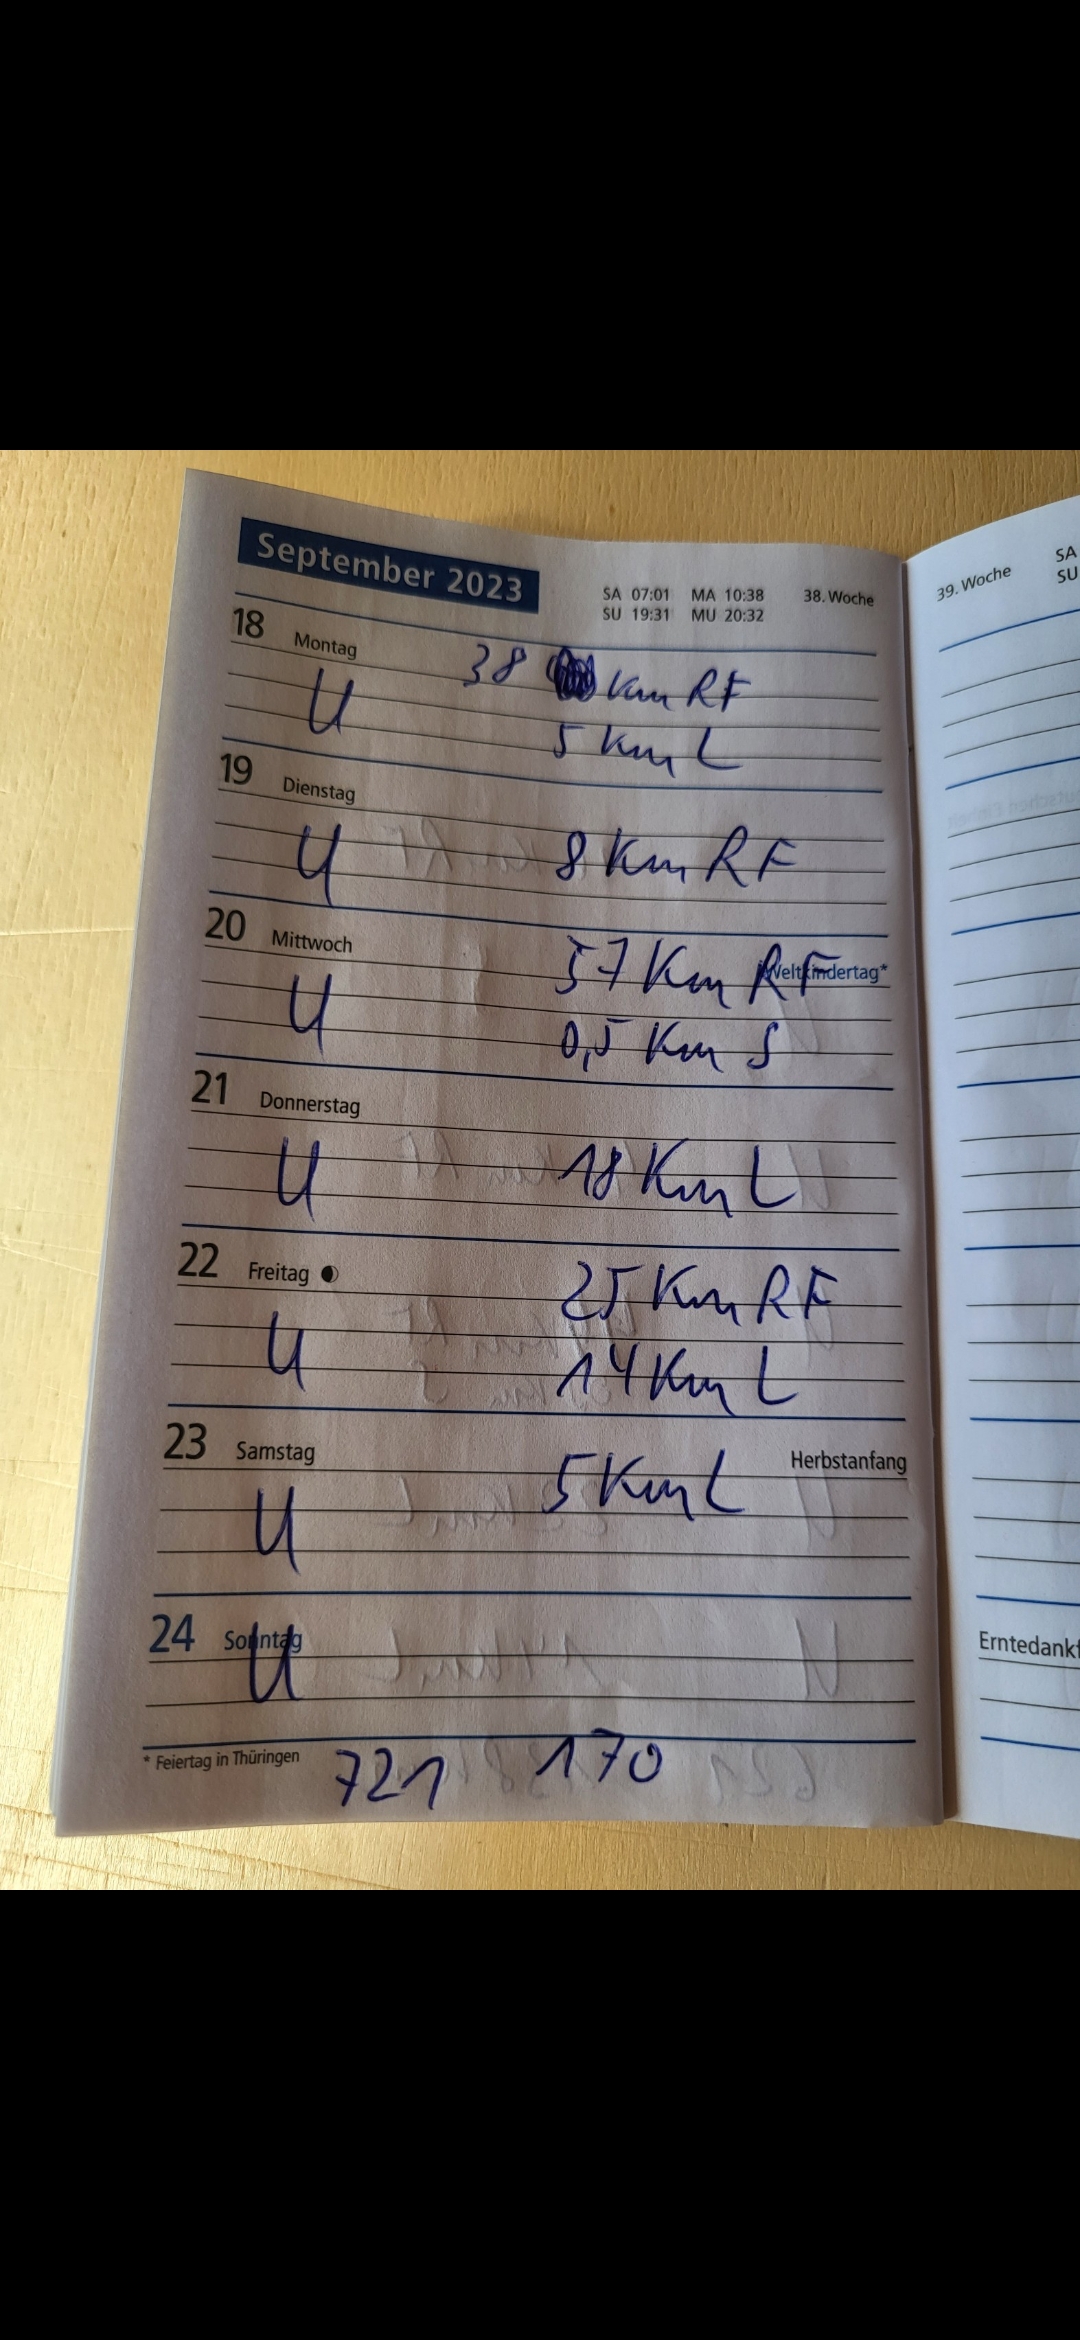 September 2023
SA 07:01 MA 10:38 38. Woche
SU 19:31 MU 20:32
18 Montag 38 Km RF
U 5 Km L
19 Dienstag
U 8 Km RF
20 Mittwoch 57 Km RF Weltkindertag*
U 0,5 Km S
21 Donnerstag
U 18 Km L
22 Freitag 25 Km RF
U 14 Km L
23 Samstag 5 Km L Herbstanfang
U
24 Sonntag
U
* Feiertag in Thüringen 721 170
39. Woche SA
SU
Erntedankf